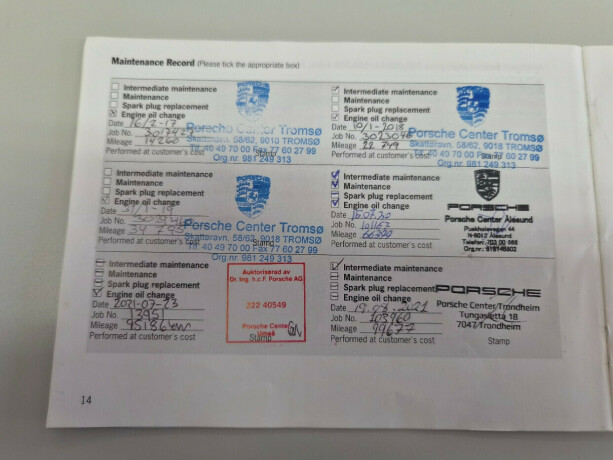 Maintenance Record (Please tick the appropriate box)
Intermediate maintenance
Maintenance
Spark plug replacement
Engine oil change
Date 16/2-17
Job No.
Mileage 14260
Performed at customer's cost
Stamp
Porsche Center Tromsø
Skattøravn. 58/62, 9018 TROMSØ
Tlf. 40 49 70 00 Fax 77 60 27 99
Org.nr. 981 249 313
Intermediate maintenance
Maintenance
Spark plug replacement
Engine oil change
Date 10/1-2018
Job No.
Mileage 22 749
Performed at customer's cost
Stamp
Porsche Center Tromsø
Skattøravn. 58/62, 9018 TROMSØ
Tlf. 40 49 70 00 Fax 77 60 27 99
Org.nr. 981 249 313
Intermediate maintenance
Maintenance
Spark plug replacement
Engine oil change
Date
Job No.
Mileage 34 795
Performed at customer's cost
Stamp
Porsche Center Tromsø
Skattøravn. 58/62, 9018 TROMSØ
Tlf. 40 49 70 00 Fax 77 60 27 99
Org.nr. 981 249 313
Intermediate maintenance
Maintenance
Spark plug replacement
Engine oil change
Date 16.07.20
Job No.
Mileage
Performed at customer's cost
Stamp
PORSCHE
Porsche Center Ålesund
Intermediate maintenance
Maintenance
Spark plug replacement
Engine oil change
Date 2021-07-23
Job No. 13951
Mileage 95186 km
Performed at customer's cost
Stamp
Auktoriserad av
Dr. Ing. h.c.F. Porsche AG
322 40549
Porsche Center
Umeå
Intermediate maintenance
Maintenance
Spark plug replacement
Engine oil change
Date
Job No. 103960
Mileage 99677
Performed at customer's cost
Stamp
PORSCHE
Porsche Center Trondheim
Tungasletta 18
7047 Trondheim
14